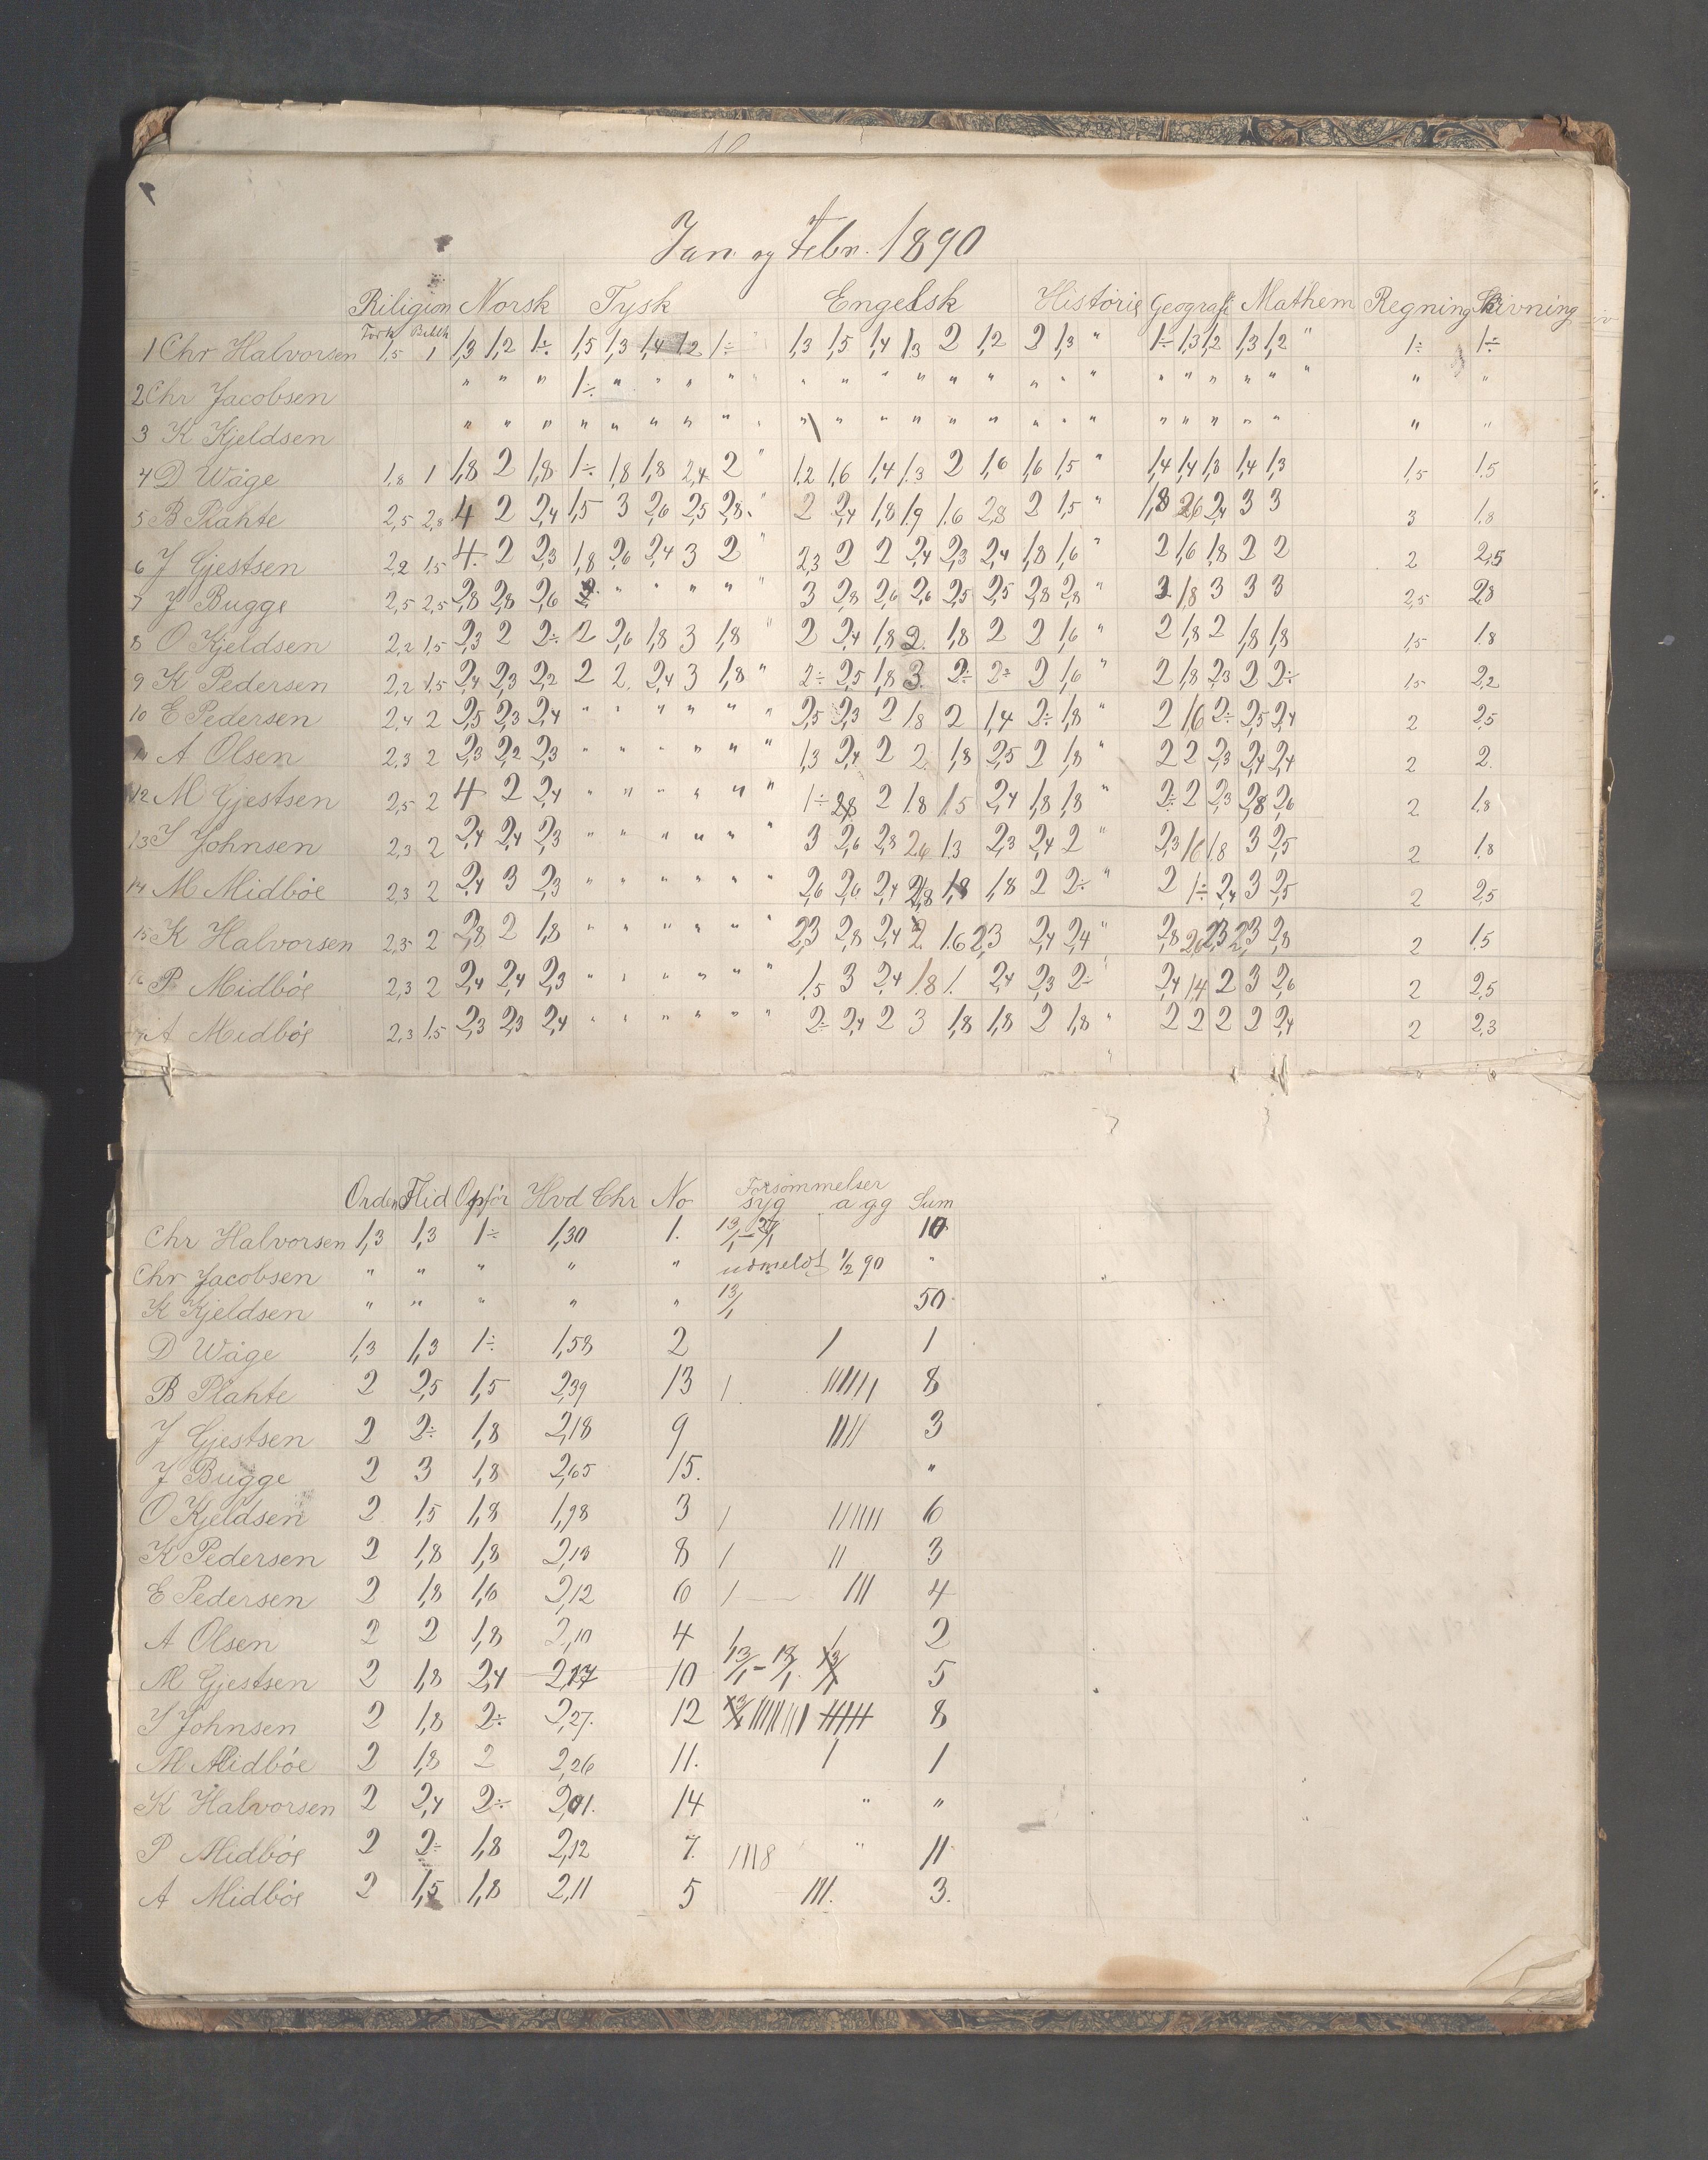 Jan og Febr. 1890
Riligion Norsk Tysk Engelsk Historie Geografi Mathem Regning Skrivning
Fork Bibelh
1 Chr Halvorsen 1,5 1 1,3 1,2 1÷ 1,5 1,3 1,4 1,2 1÷ " 1,3 1,5 1,4 1,3 2 1,2 2 1,3 " 1÷ 1,3 1,2 1,3 1,2 " 1÷ 1÷
2 Chr Jacobsen " " " 1÷ " " " " " " " " " " " " " " " " " " " " "
3 K Kjeldsen " " " " " " " " " " " " " " " " " " " " " " " " "
4 D Wåge 1,8 1 1,8 2 1,8 1÷ 1,8 1,8 2,4 2 " 1,2 1,6 1,4 1,3 2 1,6 1,6 1,5 " 1,4 1,4 1,3 1,4 1,3 1,5 1,5
5 B Plahte 2,5 2,8 4 2 2,4 1,5 3 2,6 2,5 2,8 " 2 2,4 1,8 1,9 1,6 2,8 2 1,5 " 1,8 2,6 2,4 3 3 3 1,8
6 J Gjestsen 2,2 1,5 4 2 2,3 1,8 2,6 2,4 3 2 " 2,3 2 2 2,4 2,3 2,4 1,8 1,6 " 2 1,6 1,8 2 2 2 2,5
7 J Bugge 2,5 2,5 2,8 2,8 2,6 " " " " " 3 2,8 2,6 2,6 2,5 2,5 2,8 2,8 " 3 1,8 3 3 3 2,5 2,8
8 O Kjeldsen 2,2 1,5 2,3 2 2÷ 2 2,6 1,8 3 1,8 " 2 2,4 1,8 2 1,8 2 2 1,6 " 2 1,8 2 1,8 1,8 1,5 1,8
9 K Pedersen 2,2 1,5 2,4 2,3 2,2 2 2 2,4 3 1,8 " 2÷ 2,5 1,8 3 2÷ 2÷ 2 1,6 " 2 1,8 2,3 2 2÷ 1,5 2,2
10 E Pedersen 2,4 2 2,5 2,3 2,4 " " " " " " 2,5 2,3 2 1,8 2 1,4 2÷ 1,8 " 2 1,6 2÷ 2,5 2,4 2 2,5
11 A Olsen 2,3 2 2,3 2,2 2,3 " " " " " " 1,3 2,4 2 2 1,8 2,5 2 1,8 " 2 2 2,3 2,4 2,4 2 2
12 M Gjestsen 2,5 2 4 2 2,4 " " " " " " 1÷ 2,8 2 1,8 1,5 2,4 1,8 1,8 2÷ 2 2,3 2,8 2,6 2 1,8
13 J Johnsen 2,3 2 2,4 2,4 2,3 " " " " " " 3 2,6 2,8 2,6 1,3 2,3 2,4 2 " 2,3 1,6 1,8 3 2,5 2 1,8
14 M Midböe 2,3 2 2,4 3 2,3 " " " " " " 2,6 2,6 2,4 2,8 1,8 1,8 2 2÷ " 2 1÷ 2,4 3 2,5 2 2,5
15 K Halvorsen 2,3 2 2,8 2 1,8 " " " " " " 2,3 2,8 2,4 2 1,6 2,3 2,4 2,4 " 2,8 2,6 2,3 2,3 2,8 2 1,5
16 P Midböe 2,3 2 2,4 2,4 2,3 " " " " " " 1,5 3 2,4 1,8 1 2,4 2,3 2÷ 2,4 1,4 2 3 2,6 2 2,5
17 A Midböe 2,3 1,5 2,3 2,3 2,4 " " " " " " 2÷ 2,4 2 3 1,8 1,8 2 1,8 " 2 2 2 2 2,4 2 2,3
Orden Flid Opför Hvd Chr No Forsömmelser
syg a gg Sum
Chr Halvorsen 1,3 1,3 1÷ 1,30 1. 13/1 - 27/1 10
Chr Jacobsen " " " " " udmeldt 1/2 90 "
K Kjeldsen " " " " " 13/1 50
D Wåge 1,3 1,3 1÷ 1,58 2 / 1
B Plahte 2 2,5 1,5 2,39 13 / /////// 8
J Gjestsen 2 2÷ 1,8 2,18 9 //// 3
J Bugge 2 3 1,8 2,65 15. "
O Kjeldsen 2 1,5 1,8 1,98 3 / ////// 6
K Pedersen 2 1,8 1,8 2,13 8 / // 3
E Pedersen 2 1,8 1,6 2,12 6 / /// 4
A Olsen 2 2 1,8 2,10 4 / / 2
M Gjestsen 2 1,8 2,4 2,17 10 13/1 - 18/1. 5
J Johnsen 2 1,8 2÷ 2,27. 12 8
M Midböe 2 1,8 2 2,26 11. / 1
K Halvorsen 2 2,4 2÷ 14 " "
P Midböe 2 2÷ 1,8 2,12 7. ///8 " 11
A Midböe 2 1,5 1,8 2,11 5 ///. 3.